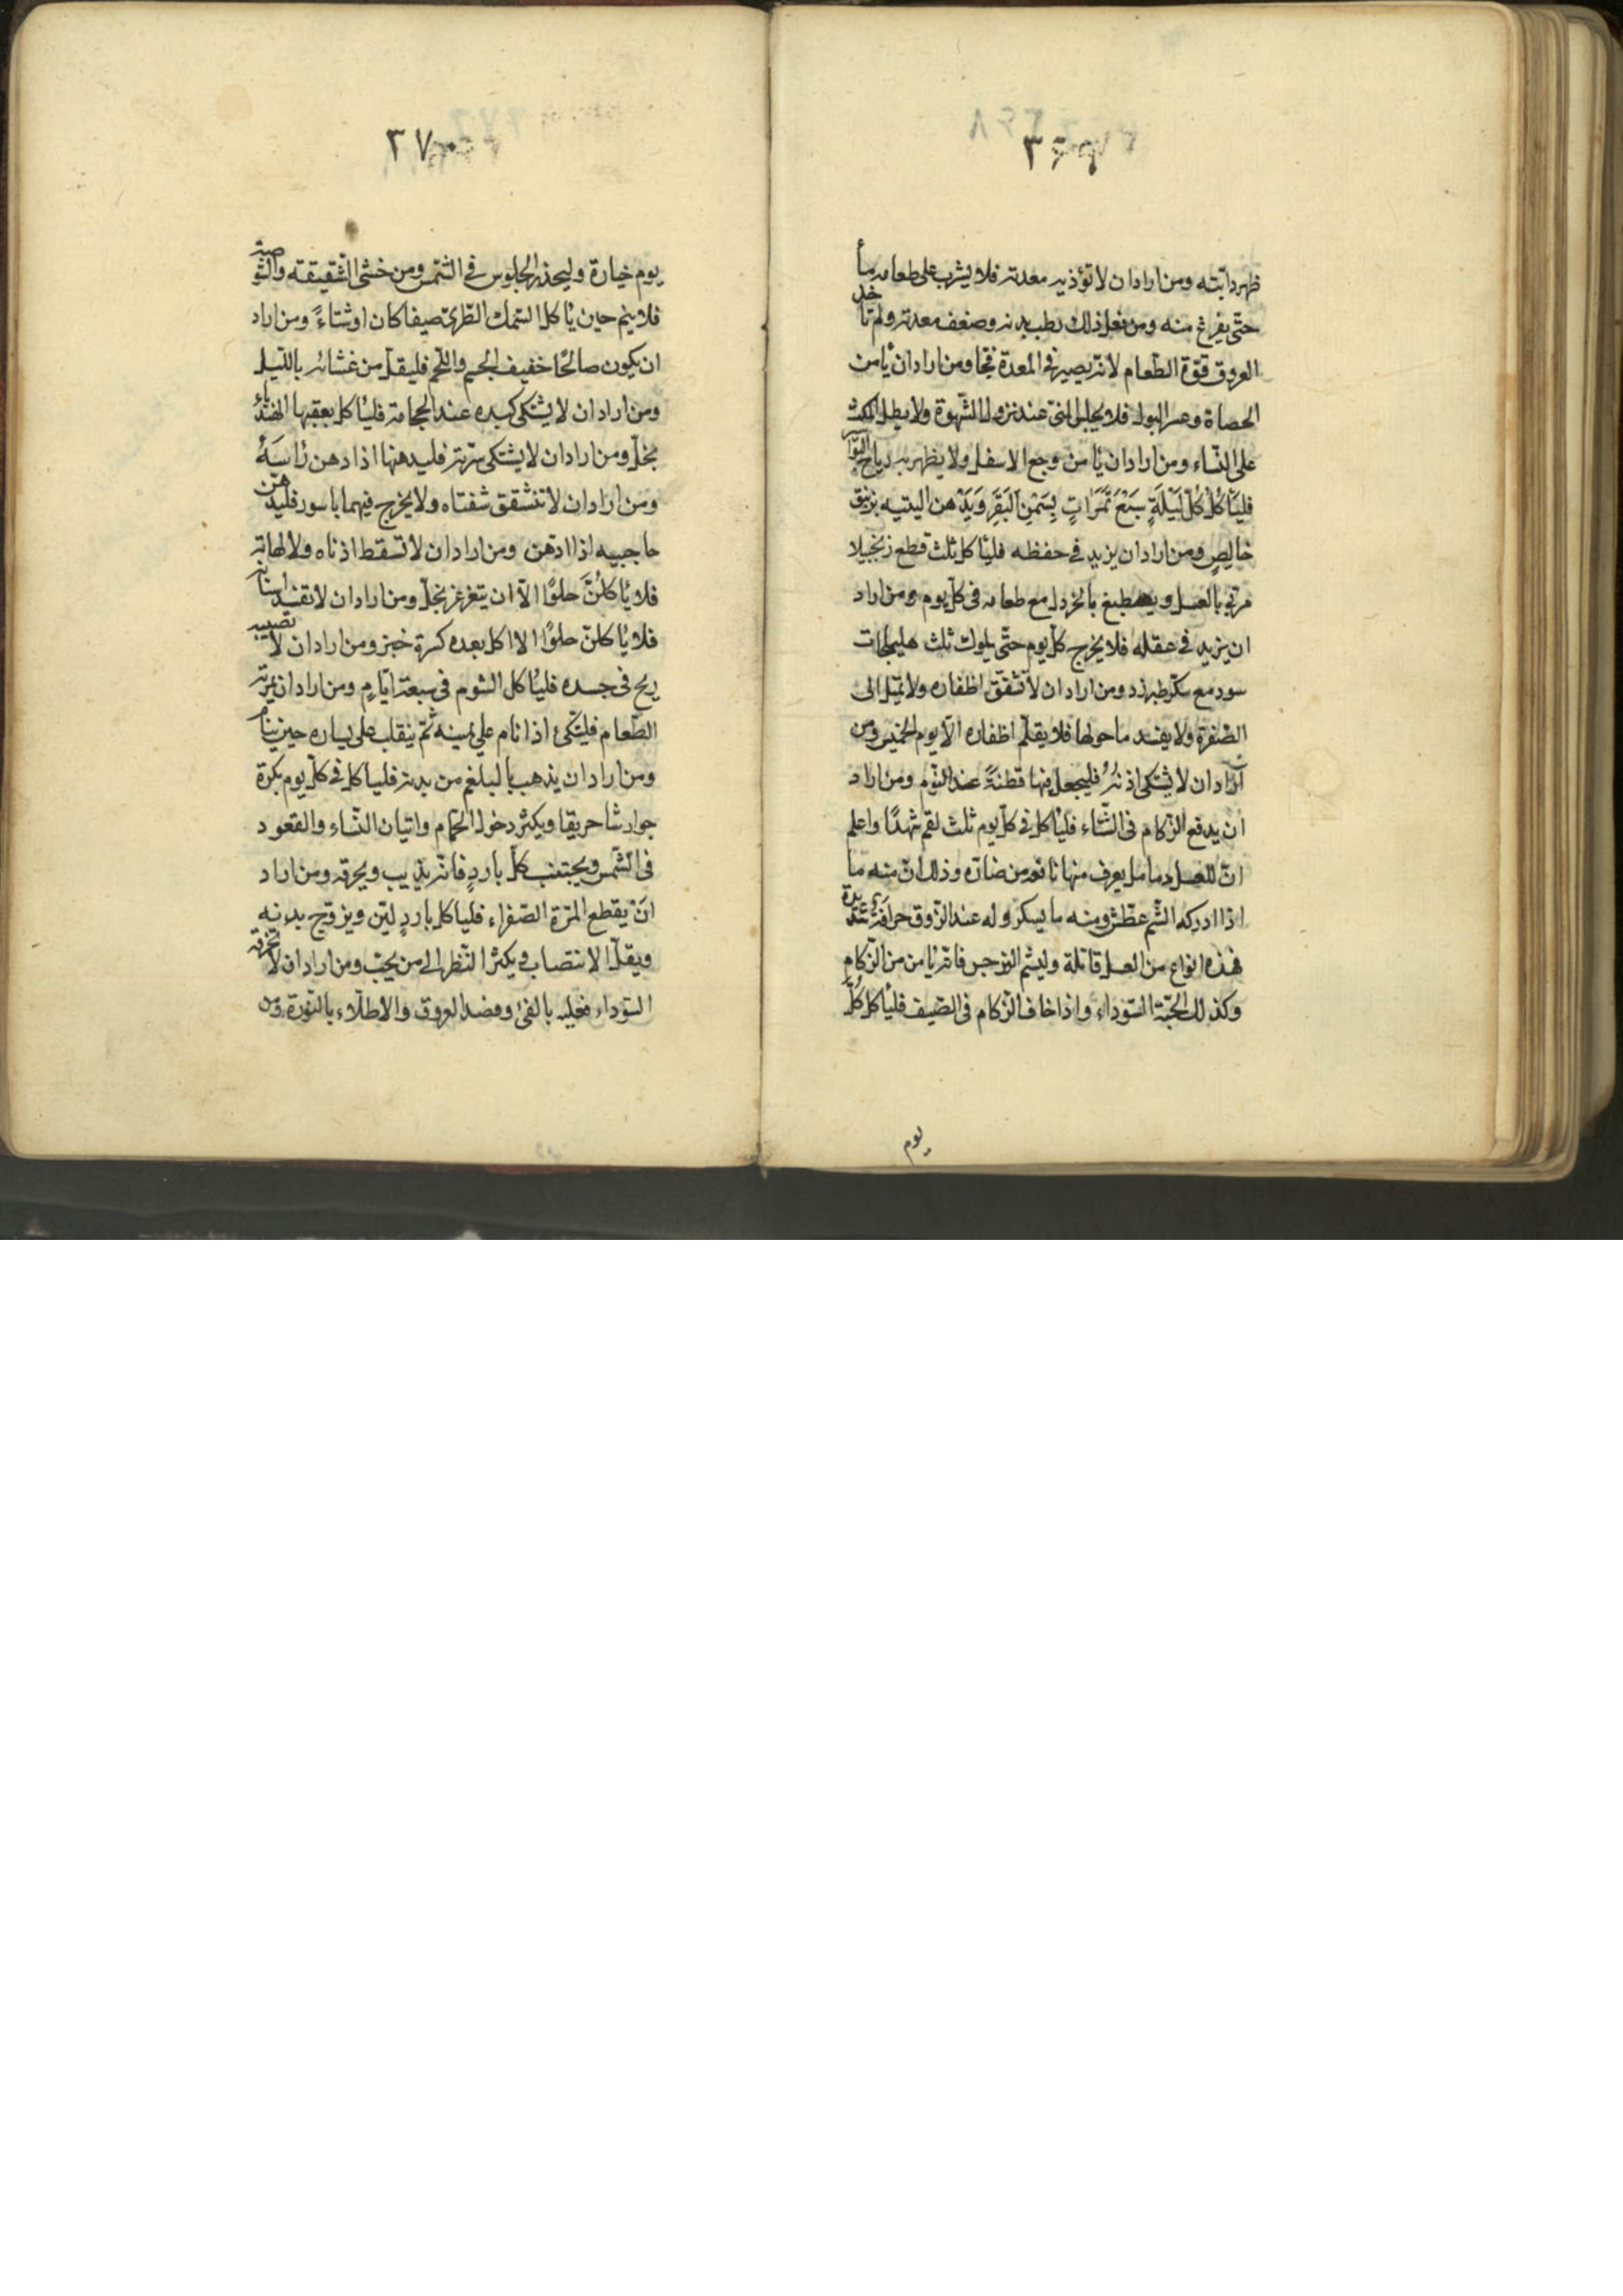 ٣٦٩
ظهر دابّته ومن اراد ان لا تؤذيه معدته فلا يشرب على طعامه ماء
حتّى يفرغ منه ومن فعل ذلك رطب بدنه وضعف معدته ولم تأخذ
العروق قوّة الطّعام لانّه يصير فى المعدة فجّا ومن اراد ان يأمن
الحصاة وعسر البول فلا يحبس المنىّ عند نزول الشّهوة ولا يطل المكث
على النّساء ومن اراد ان يأمن وجع الاسفل ولا يظهر به رياح البواسير
فليأكل كُلَّ لَيْلَةٍ سَبْعَ تَمَرَاتٍ بِسَمْنِ الْبَقَرِ وَيَدّهن اليتيه بزنبق
خالصٍ ومن اراد ان يزيد فى حفظه فليأكل ثلث قطع زنجبيلا
مربّى بالعسل ويصطبغ بالخردل مع طعامه فى كلّ يوم ومن اراد
ان يزيد فى عقله فلا يخرج كلّ يوم حتّى يلوك ثلث هليلجات
سود مع سكّر طبرزد ومن اراد ان لا تشقّق اظفاره ولا تميل الى
الصّفرة ولا يفسد ما حولها فلا يقلّم اظفاره الّا يوم الخميس ومن
اراد ان لا يشتكى اذنُهُ فليجعل فيها قطنةً عند النّوم ومن اراد
ان يدفع الزّكام فى الشّتاء فليأكل فى كلّ يوم ثلث لقم شهدًا واعلم
انّ للعسل دما مل يعرف منها نافعه من ضارّه وذلك انّ منه ما
اذا ادركه الشّم عطّش ومنه ما يسكر وله عند الذّوق حرافة شديدة
فهذه انواع من العسل قاتلة وليشمّ النرجس فانّه يأمن من الزّكام
وكذلك الحبّة السّوداء واذا خاف الزّكام فى الصّيف فليأكل كُلَّ
يوم
٣٧٠
يوم خيارة وليحذر الجلوس فى الشّمس ومن خشى الشّقيقته والشّوصة
فلا ينم حين يأكل السّمك الطّرىّ صيفا كان او شتاءً ومن اراد
ان يكون صالحًا خفيف الجسم واللّحم فليقلّ من عشائه باللّيل
ومن اراد ان لا يشتكى كبده عند الحجامة فليأكل بعقبها الهندباء
بخلّ ومن اراد ان لا يشتكى سرّته فليدهنها اذا دهن رأسَهُ
ومن اراد ان لا تنشقق شفتاه ولا يخرج فيهما باسور فليدهن
حاجبيه اذا ادّهن ومن اراد ان لا تسقط اذناه ولا لهاته
فلا يأكلنَّ حلوًا الّا ان يتغرغر بخلّ ومن اراد ان لا تفسد اسنانه
فلا يأكلنّ حلوًا الا اكل بعده كسرة خبز ومن اراد ان لا تصيبه
ريح فى جسده فليأكل الثوم فى سبعة ايّامٍ ومن اراد ان يمرئه
الطّعام فليتّكئ اذا نام على يمينه ثُمّ ينقلب على يساره حين ينام
ومن اراد ان يذهب بالبلغم من بدنه فليأكل فى كلّ يوم بكرة
جوارشا حريقا ويكثر دخول الحمّام واتيان النّساء والقعود
فى الشّمس ويجتنب كلّ باردٍ فانّه يذيب ويحرقه ومن اراد
انْ يقطع المرّة الصّفراء فلياكل باردٍ ليّن ويزوّح بدنه
ويقلّ الانتصاب ويكثر النّظر الى من يحبّ ومن اراد ان لا تحرقه
السّوداء فعليه بالقئ وفصد العروق والاطلاء بالنّورة ومن